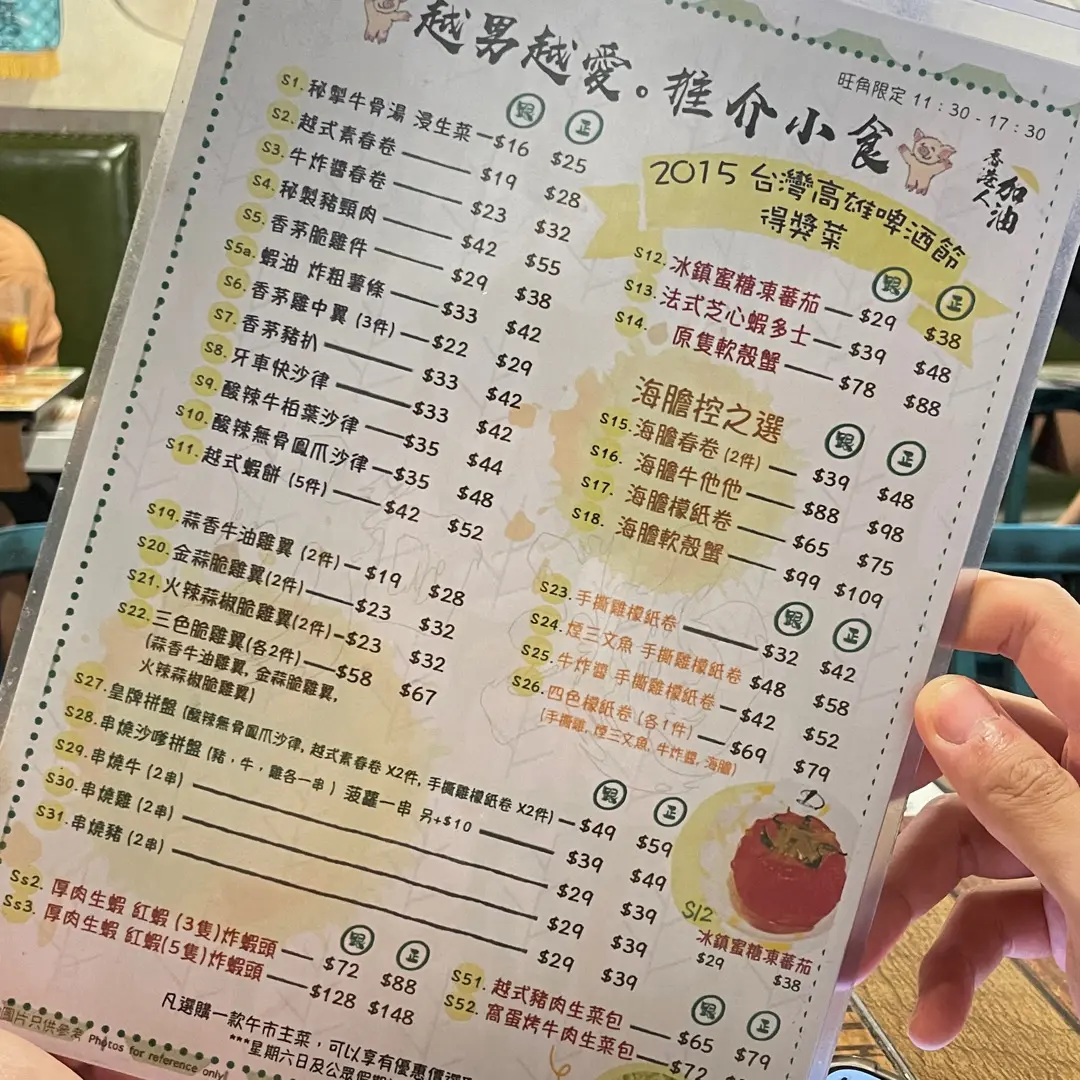 越男越愛。推介小食
旺角限定 11：30 - 17：30
香港人
加油
跟 正
S1. 秘掣牛骨湯 浸生菜 $16 $25
S2. 越式素春卷 $19 $28
S3. 牛炸醬春卷 $23 $32
S4. 秘製豬頸肉 $42 $55
S5. 香茅脆雞件 $29 $38
S5a. 蝦油 炸粗薯條 $33 $42
S6. 香茅雞中翼 (3件) $22 $29
S7. 香茅豬扒 $33 $42
S8. 牙車快沙律 $33 $42
S9. 酸辣牛柏葉沙律 $35 $44
S10. 酸辣無骨鳳爪沙律 $35 $48
S11. 越式蝦餅 (5件) $42 $52
S19. 蒜香牛油雞翼 (2件) $19 $28
S20. 金蒜脆雞翼(2件) $23 $32
S21. 火辣蒜椒脆雞翼(2件) $23 $32
S22. 三色脆雞翼(各2件) $58 $67
(蒜香牛油雞翼, 金蒜脆雞翼,
火辣蒜椒脆雞翼)
2015 台灣高雄啤酒節
得獎菜
跟 正
S12. 冰鎮蜜糖凍蕃茄 $29 $38
S13. 法式芝心蝦多士 $39 $48
S14. 原隻軟殼蟹 $78 $88
海膽控之選
跟 正
S15. 海膽春卷 (2件) $39 $48
S16. 海膽牛他他 $88 $98
S17. 海膽檬紙卷 $65 $75
S18. 海膽軟殼蟹 $99 $109
跟 正
S23. 手撕雞檬紙卷 $32 $42
S24. 煙三文魚 手撕雞檬紙卷 $48 $58
S25. 牛炸醬 手撕雞檬紙卷 $42 $52
S26. 四色檬紙卷 (各1件) $69 $79
(手撕雞, 煙三文魚, 牛炸醬, 海膽)
跟 正
S27. 皇牌拼盤 (酸辣無骨鳳爪沙律, 越式素春卷 X2件, 手撕雞檬紙卷 X2件) $49 $59
S28. 串燒沙嗲拼盤 (豬，牛，雞各一串) 菠蘿一串 另+$10 $39 $49
S29. 串燒牛 (2串) $29 $39
S30. 串燒雞 (2串) $29 $39
S31. 串燒豬 (2串) $29 $39
S12
冰鎮蜜糖凍蕃茄
$29 $38
跟 正
Ss2. 厚肉生蝦 紅蝦 (3隻)炸蝦頭 $72 $88
Ss3. 厚肉生蝦 紅蝦(5隻)炸蝦頭 $128 $148
跟 正
S51. 越式豬肉生菜包 $65 $79
S52. 窩蛋烤牛肉生菜包 $72
凡選購一款午市主菜，可以享有優惠價
***星期六日及公眾假期
圖片只供參考 Photos for reference only